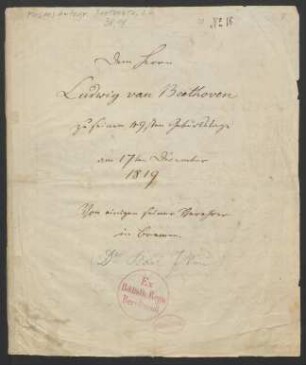 Nº 18
Dem Herrn
Ludwig van Beethoven
zu seinem 49sten Geburtstage
am 17ten December
1819
Von einigen seiner Verehrer
in Bremen
Dr
Ex
Biblioth. Regia
Berolinensi